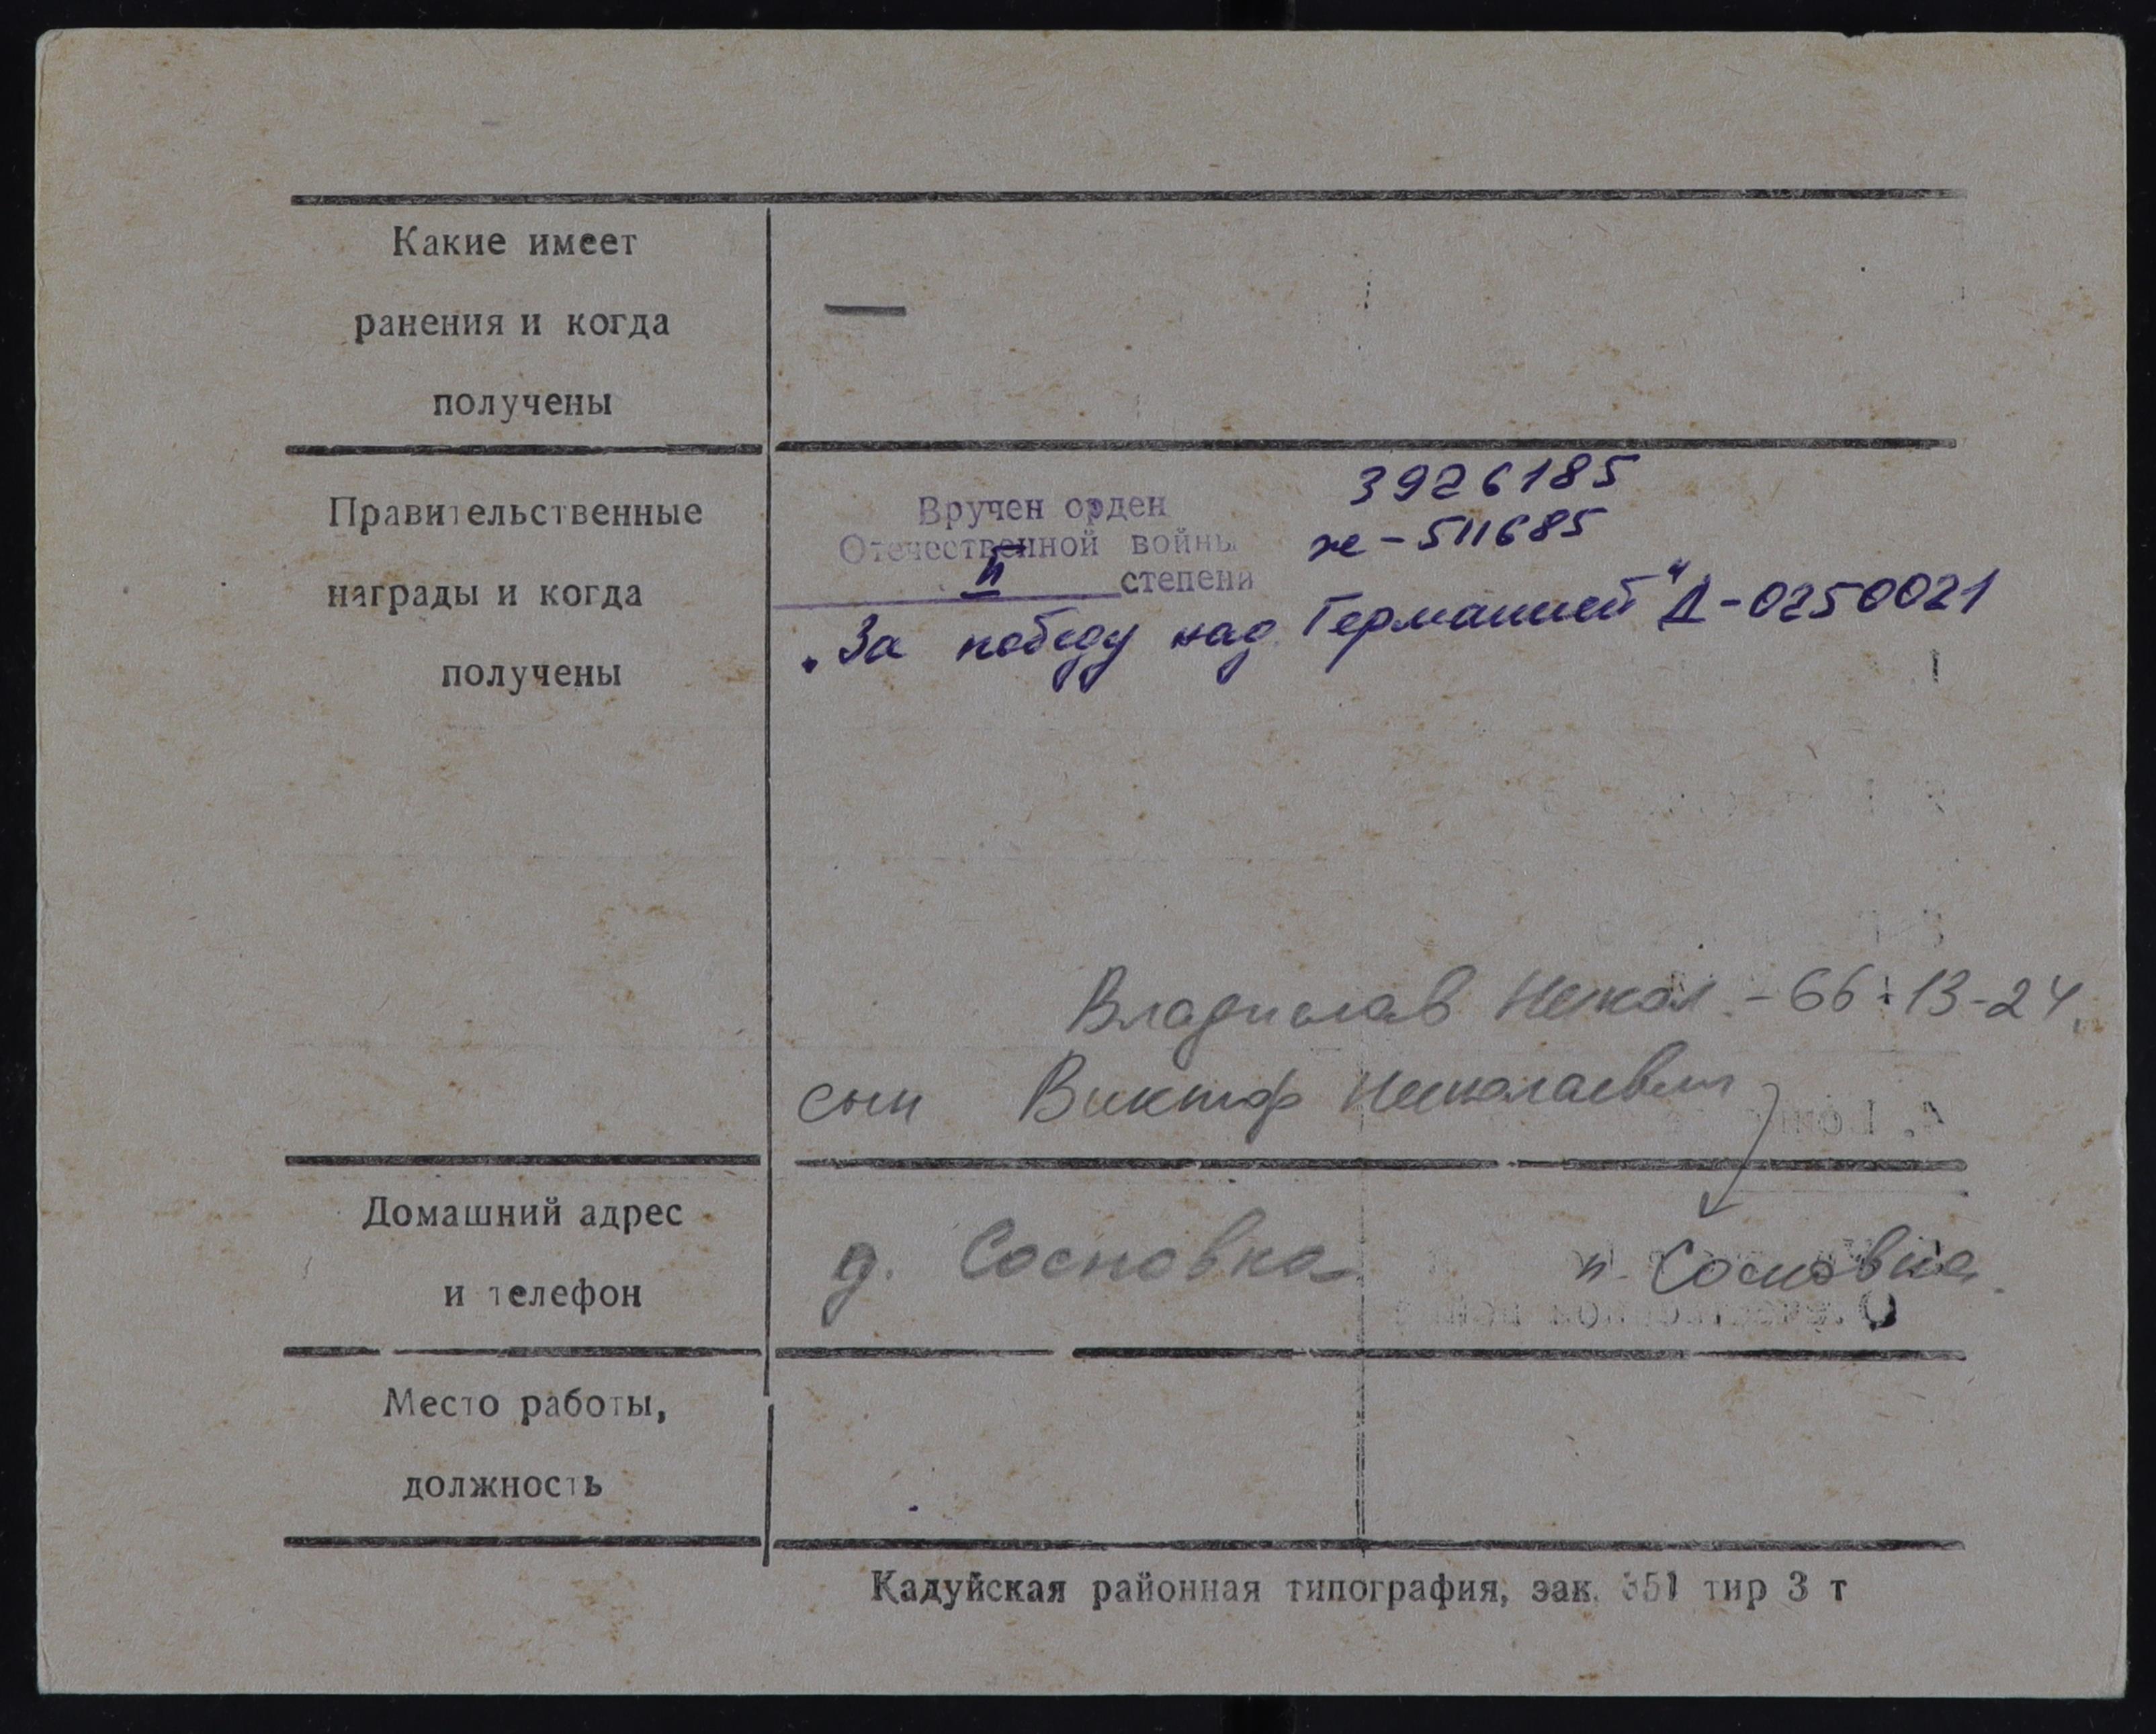 Какие имеет
ранения и когда
получены
—
Правительственные
награды и когда
получены
Вручен орден
Отечественной войны
II степени
3926185
же - 511685
„За победу над Германией“ Д-0250021
Владислав Никол. - 66-13-24
сын Виктор Николаевич
Домашний адрес
и телефон
д. Сосновка
п. Сосновка
Место работы,
должность
Кадуйская районная типография, зак. 351 тир 3 т